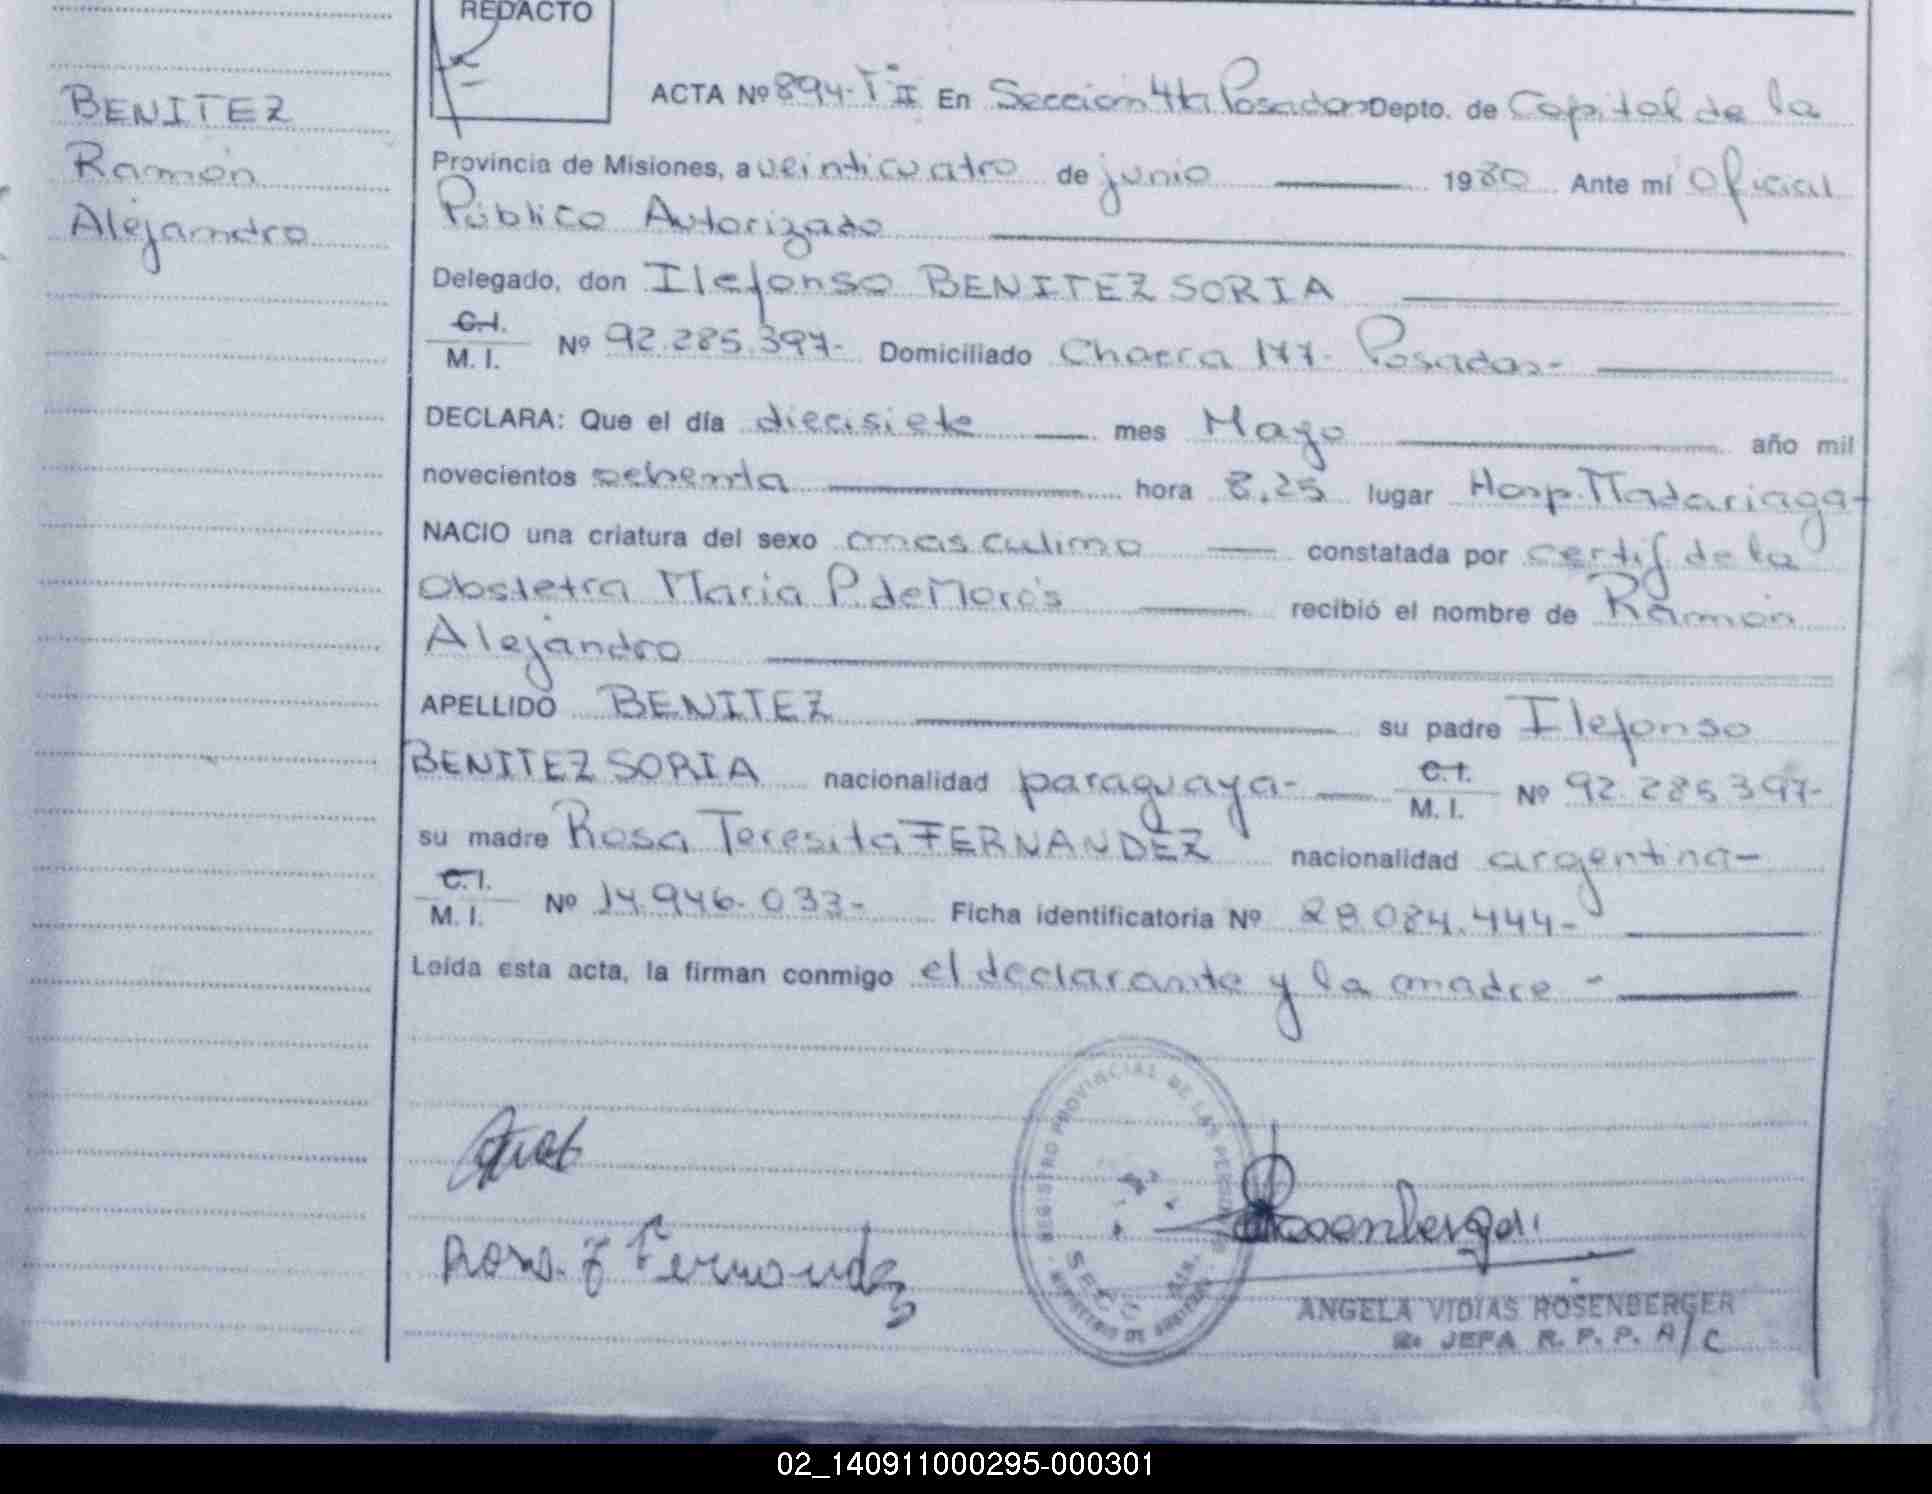 REDACTO
BENITEZ
Ramón
Alejandro
ACTA Nº 894-TºII En Sección 4ta Posadas Depto. de Capital de la
Provincia de Misiones, a veinticuatro de junio 1980 Ante mí Oficial
Público Autorizado
Delegado, don Ilefonso BENITEZ SORIA
C.I.
M. I. Nº 92.285.397- Domiciliado Chacra 177- Posadas-
DECLARA: Que el día diecisiete mes Mayo año mil
novecientos ochenta hora 8,25 lugar Hosp. Madariaga-
NACIO una criatura del sexo masculino constatada por certif de la
Obstetra Maria P. de recibió el nombre de Ramón
Alejandro
APELLIDO BENITEZ su padre Ilefonso
BENITEZ SORIA nacionalidad paraguaya- C.I.
M. I. Nº 92.285.397-
su madre Rosa Teresita FERNANDEZ nacionalidad argentina-
C.I.
M. I. Nº 14.946.033- Ficha identificatoria Nº 28.084.444-
Leída esta acta, la firman conmigo el declarante y la madre -
REGISTRO PROVINCIAL DE LAS PERSONAS
SECC. 4ta.
Rosa T Fernandez
Rosenberger
ANGELA VIDIAS ROSENBERGER
JEFA R. P. P. A/C
02_140911000295-000301